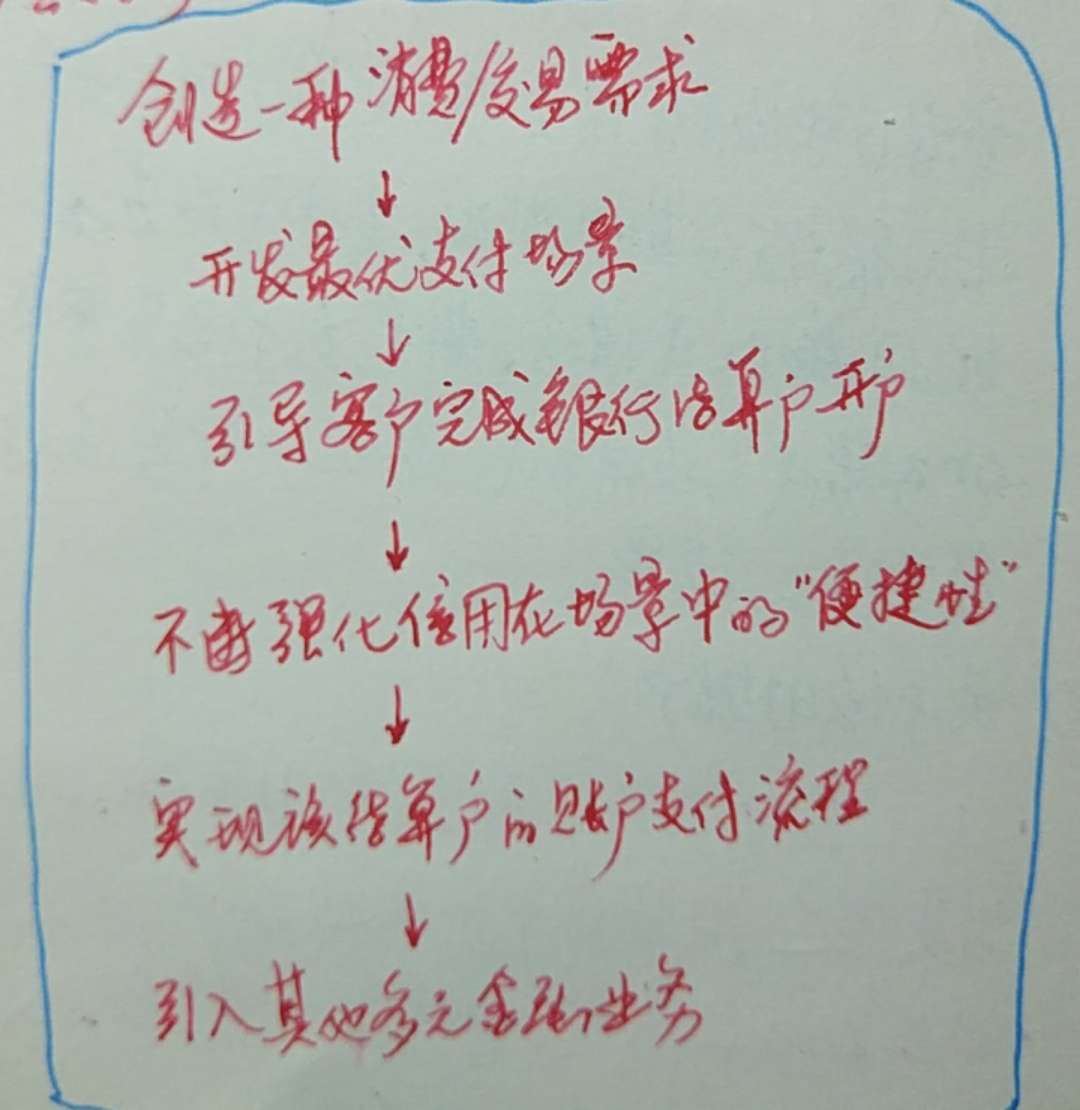 创造一种消费/交易需求
↓
开发最优支付场景
↓
引导客户完成银行结算户开户
↓
不断强化信用在场景中的“便捷性”
↓
实现该结算户的账户支付流程
↓
引入其他多元金融业务